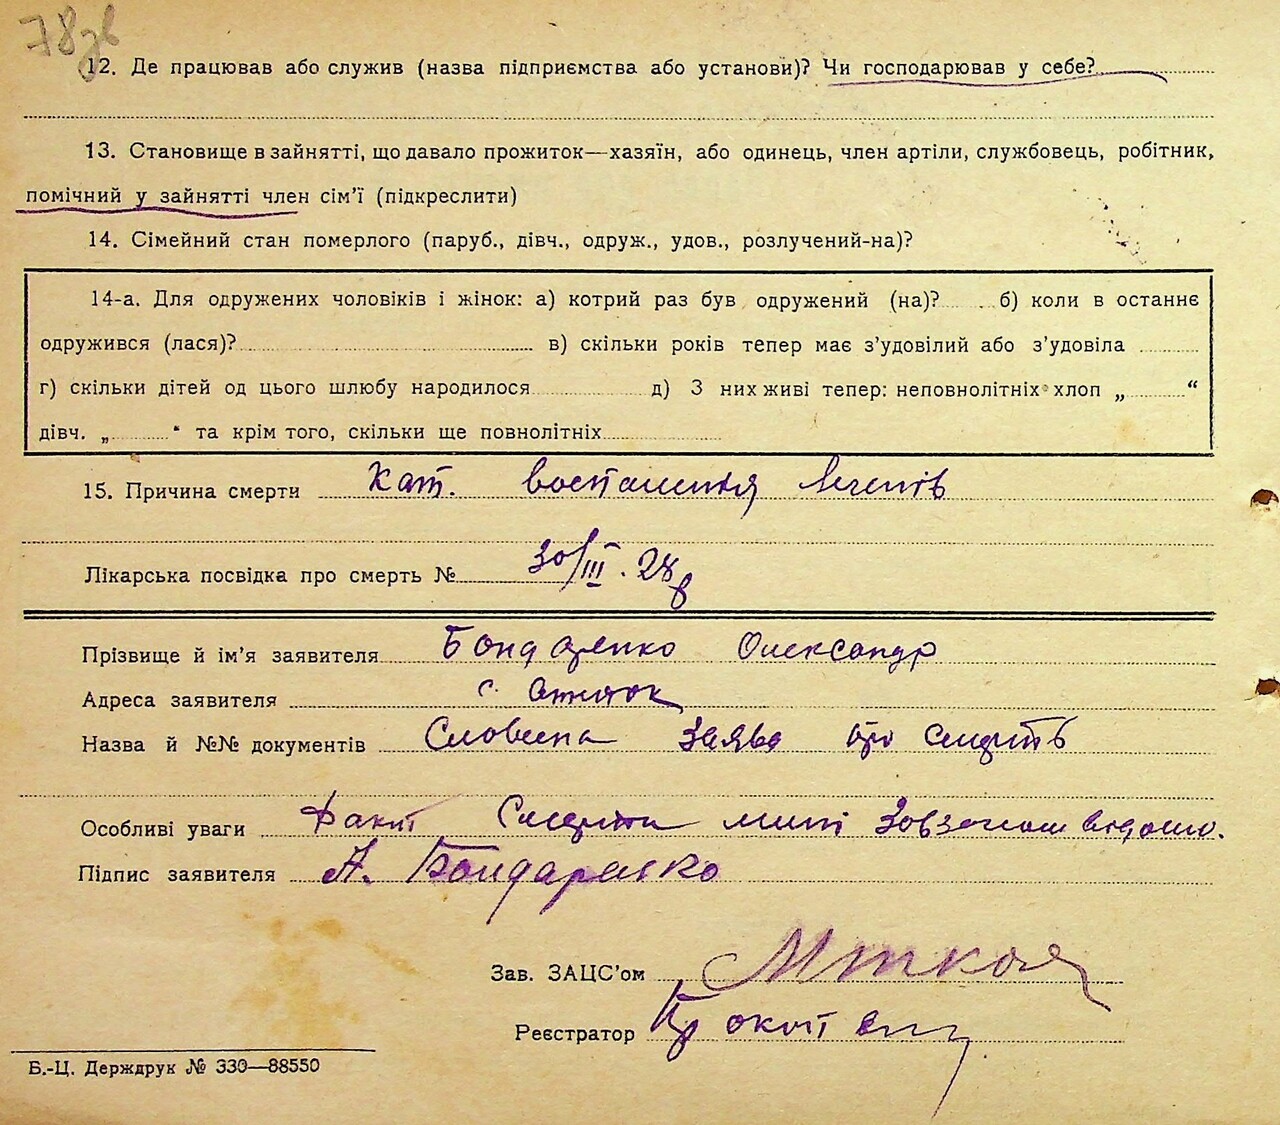 78зв
12. Де працював або служив (назва підприємства або установи)? Чи господарював у себе?
13. Становище в зайнятті, що давало прожиток—хазяїн, або одинець, член артіли, службовець, робітник,
помічний у зайнятті член сім'ї (підкреслити)
14. Сімейний стан померлого (паруб., дівч., одруж., удов., розлучений-на)?
14-а. Для одружених чоловіків і жінок: а) котрий раз був одружений (на)? б) коли в останнє
одружився (лася)? в) скільки років тепер має з'удовілий або з'удовіла
г) скільки дітей од цього шлюбу народилося д) З них живі тепер: неповнолітніх хлоп „ “
дівч. „ “ та крім того, скільки ще повнолітніх
15. Причина смерти Кат. воспаления легенів
Лікарська посвідка про смерть № 30/III. 28 р
Прізвище й ім'я заявителя Бондаренко Олександр
Адреса заявителя с.
Назва й №№ документів Словесна заява про смерть
Особливі уваги Факт смерти мині відомо.
Підпис заявителя А. Бондаренко
Зав. ЗАЦС'ом
Реєстратор
Б.-Ц. Держдрук № 330—88550